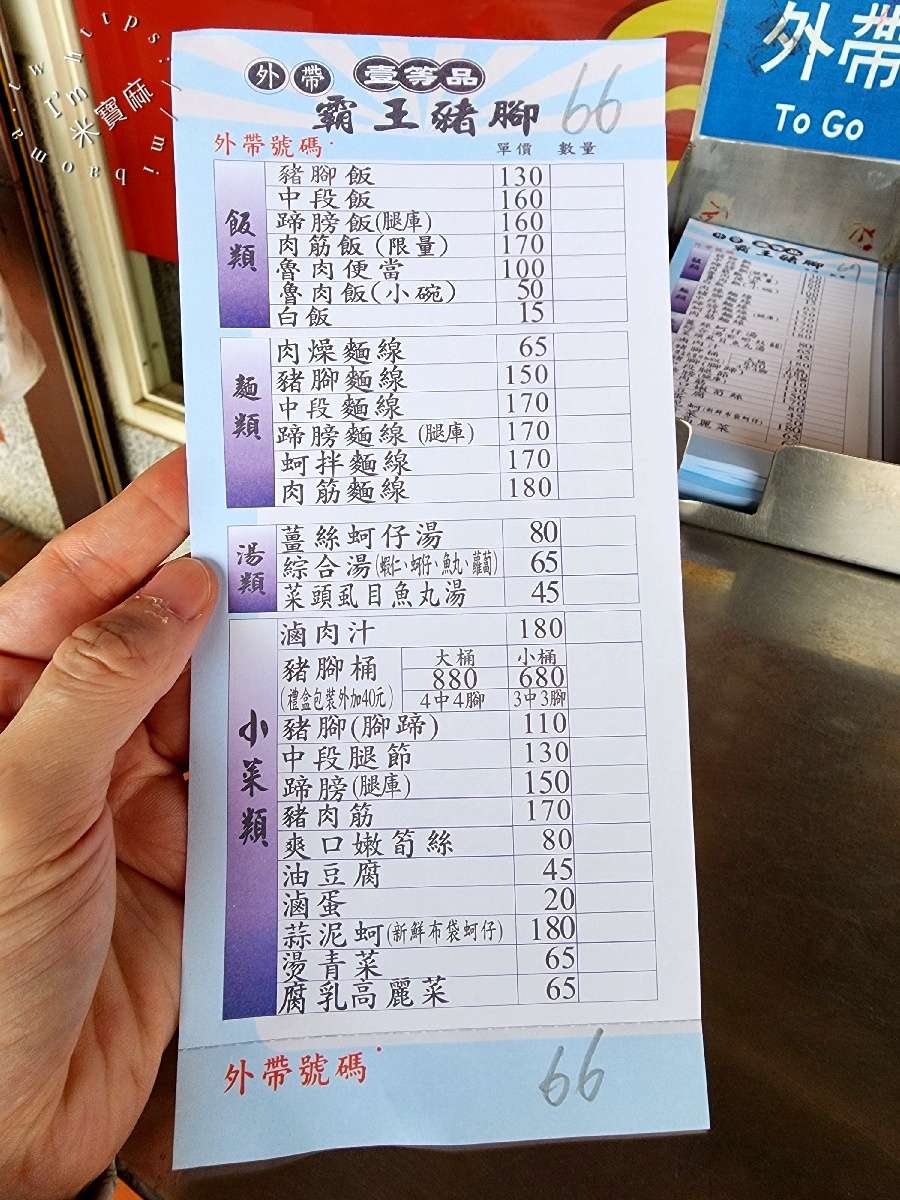 https://mibaoma.tw
I'm
米寶麻
外帶
To Go
外帶 壹等品
霸王豬腳 66
外帶號碼:
單價 數量
飯類
豬腳飯 130
中段飯 160
蹄膀飯(腿庫) 160
肉筋飯(限量) 170
魯肉便當 100
魯肉飯(小碗) 50
白飯 15
麵類
肉燥麵線 65
豬腳麵線 150
中段麵線 170
蹄膀麵線(腿庫) 170
蚵拌麵線 170
肉筋麵線 180
湯類
薑絲蚵仔湯 80
綜合湯(蝦仁、蚵仔、魚丸、蘿蔔) 65
菜頭虱目魚丸湯 45
小菜類
滷肉汁 180
豬腳桶 大桶 小桶
880 680
(禮盒包裝外加40元) 4中4腳 3中3腳
豬腳(腳蹄) 110
中段腿節 130
蹄膀(腿庫) 150
豬肉筋 170
爽口嫩筍絲 80
油豆腐 45
滷蛋 20
蒜泥蚵(新鮮布袋蚵仔) 180
燙青菜 65
腐乳高麗菜 65
外帶號碼: 66